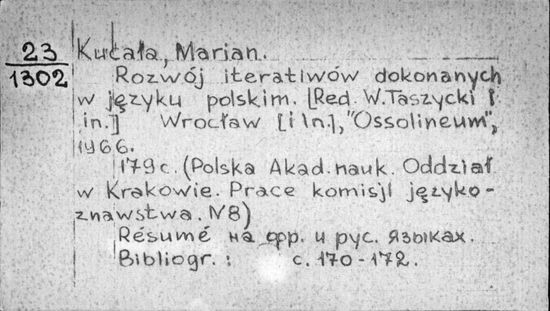 23
1302
Kucała, Marian.
Rozwój iteratiwów dokonanych
w języku polskim. [Red. W. Taszycki i
in.] Wrocław [i in.], "Ossolineum",
1966.
179 с. (Polska Akad. nauk. Oddział
w Krakowie. Prace komisji języko-
znawstwa. N8)
Résumé на фр. и рус. языках.
Bibliogr.: с. 170-172.